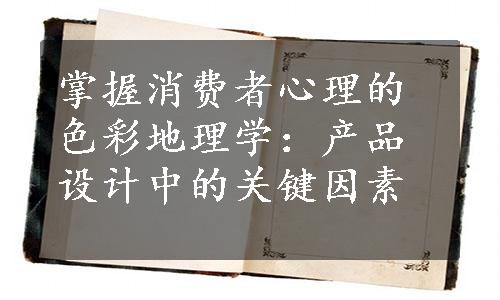 掌握消费者心理的
色彩地理学：产品
设计中的关键因素